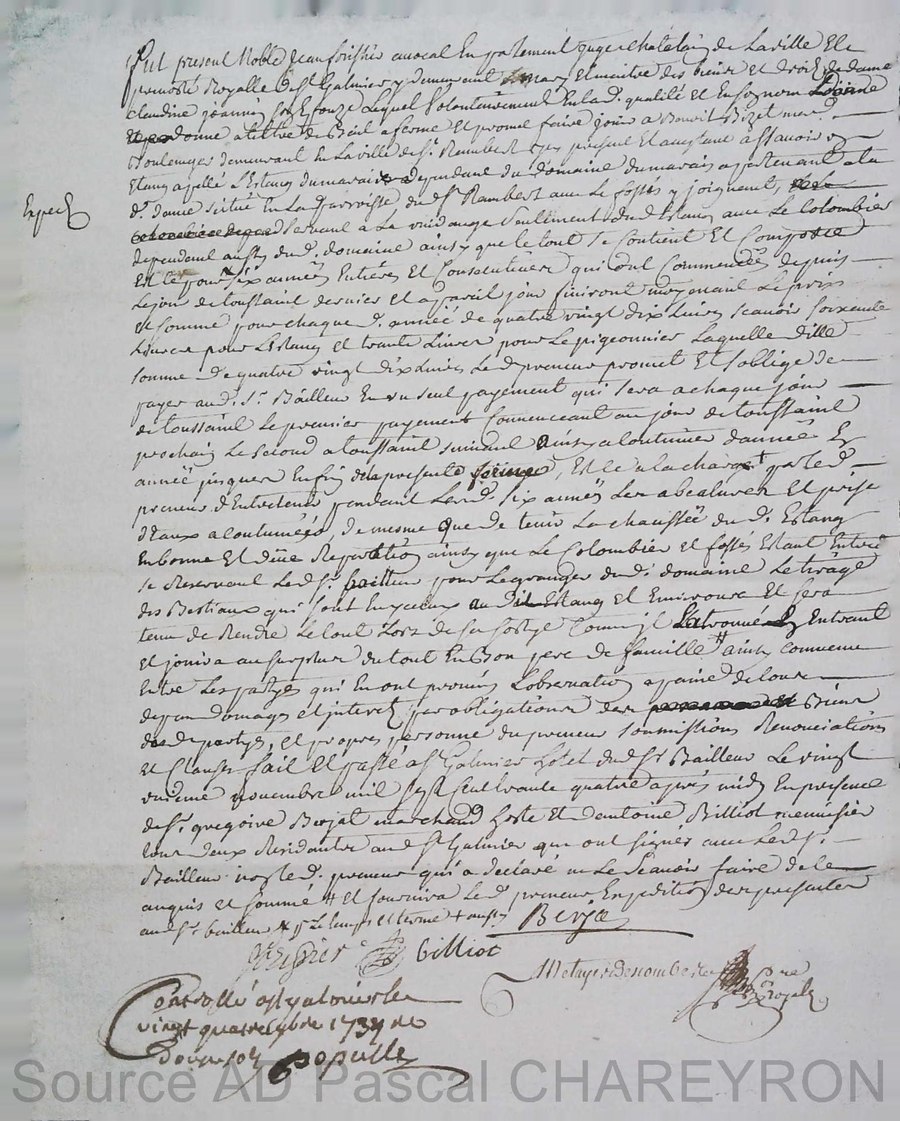 Fut présent Noble Jean frissier avocat En parlement juge chatelain de La ville Et
prevosté Royalle de St Galmier y demeurant mary Et maitre des biens et droits de dame
claudine jeannin Lequel volontairement En lad. qualité et En son nom
donne a tittre de Bail a ferme Et promet faire jouir a Benoit Bizet md.
Boulenger demeurant En La ville de St. Rambert icy present et acceptant a sçavoir un
Estang appellé L'Estang du marais dependant du domaine du marais apartenant a la
de. dame situé En La parroisse de St Rambert avec Le fossés y joignant,
Exped
servant a La vuidange seullement dud. Estang avec Le Colombier
dependant aussy dud. domaine ainsy que le tout se Contient Et Compose
Et ce pour six années Entieres Et Consecutives qui ont Commencées depuis
Le jour de toussaint dernier et a pareil jour finiront moyenant Le prix
Et somme pour chaque d. année de quatre vingt dix Livres scavoir soixante
Livres pour L'Estang Et trante Livres pour Le pigeonnier Laquelle ditte
somme de quatre vingt dix livres Le d. preneur promet Et s'oblige de
payer aud. Sr. Bailleur En un seul payement qui sera a chaque jour
de toussaint Le premier payement Commenceant au jour de toussaint
prochain Le second a toussaint suivant ainsy a Continuer d'année En
année jusques En fin du present ferme, Et ce a la charge par led.
preneur d'Entretenir pendant Lesd. six années Les abealures Et prise
d'Eaux acoutumées, de mesme que de tenir La chaussée du d. Estang
En bonne Et düe Reparation ainsy que Le Colombier et fossés Estant Entre
se Reservant Led. Sr. bailleur pour Le granger dud. domaine Le tirage
des Bestiaux qui sont En yceux aud. Estang Et Environs Et sera
tenu de Rendre Le tout Lors de sa sortye Comm'il Entrant
et jouira au surplus du tout En Bon pere de famille # ainsy convenu
Entre Les partyes qui En ont promis L'observation a paine de tous
depens domages et interets par obligations des Biens
desd. partyes, et propre personne du preneur soumissions Renonciations
et Clauses fait Et passé a St Galmier hotel dud. Sr Bailleur Le vingt
novembre mil sept Cent trante quatre après midy En presence
de Sr. gregoire Berjat marchand hoste Et d'antoine Billiot menuisier
tous deux Residants aud. St Galmier qui ont signés avec Led. Sr.
Bailleur non led. preneur qui a declaré ne Le scavoir faire de ce
enquis et sommé # et fournira Led. preneur Expedition des presentes
aud. Sr. bailleur # pr. Le temps et terme Berja
frissier billiot
Metayer
nre Royal
Controllé a St Galmier le
vingt quatre 9bre 1734
Douze sols
Source AD Pascal CHAREYRON